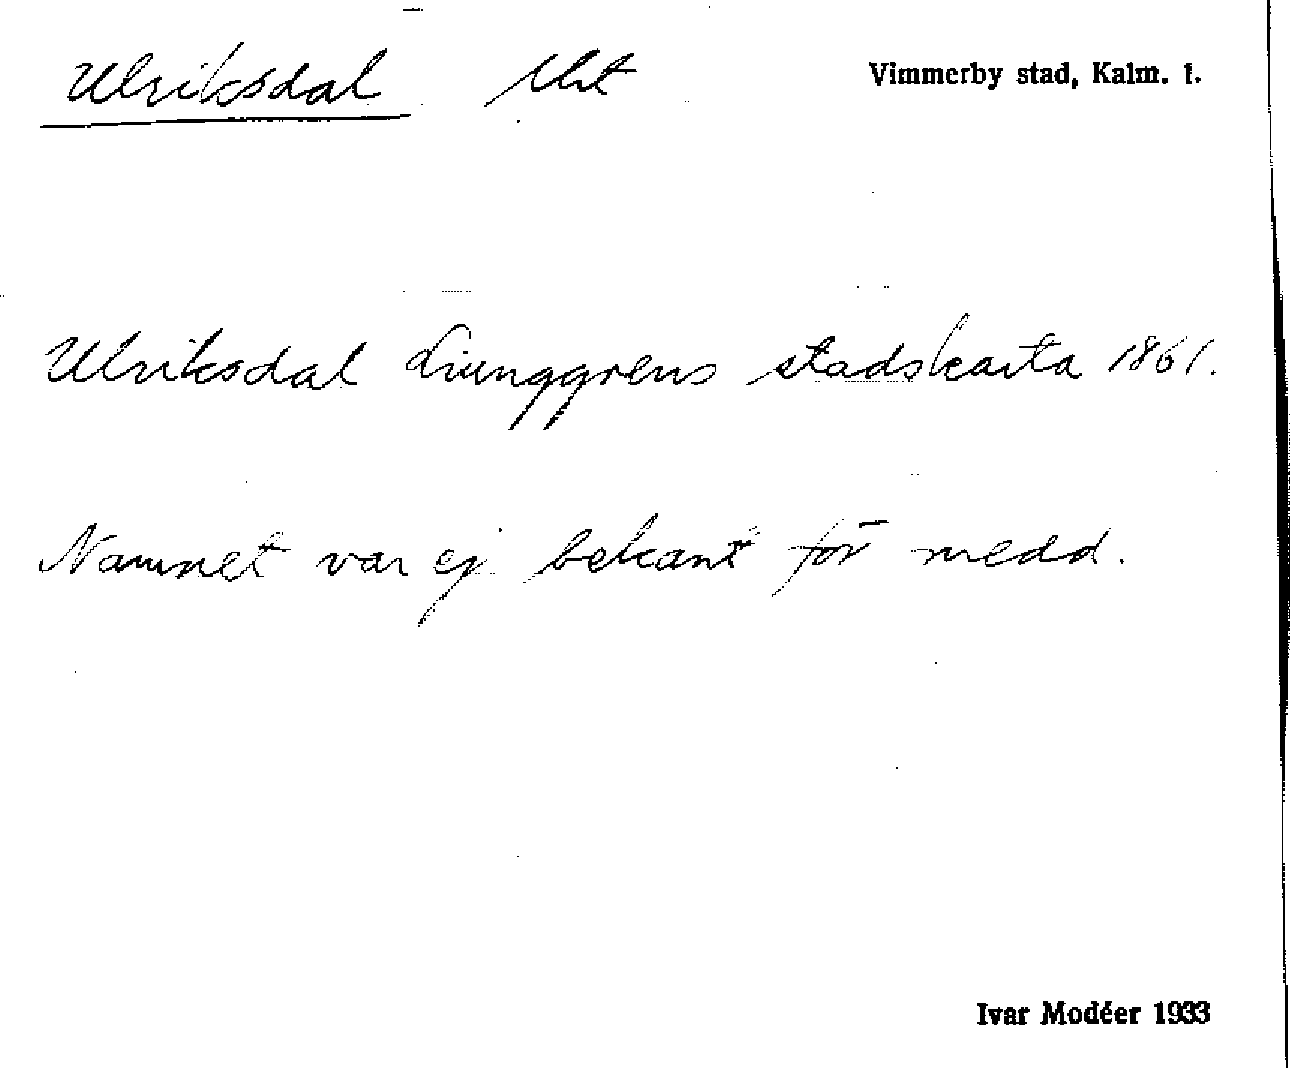 Ulriksdal Vimmerby stad, Kalm. l.
Ulriksdal Liunggrens stadskarta 1861.
Namnet var ej bekant för medd.
Ivar Modéer 1933